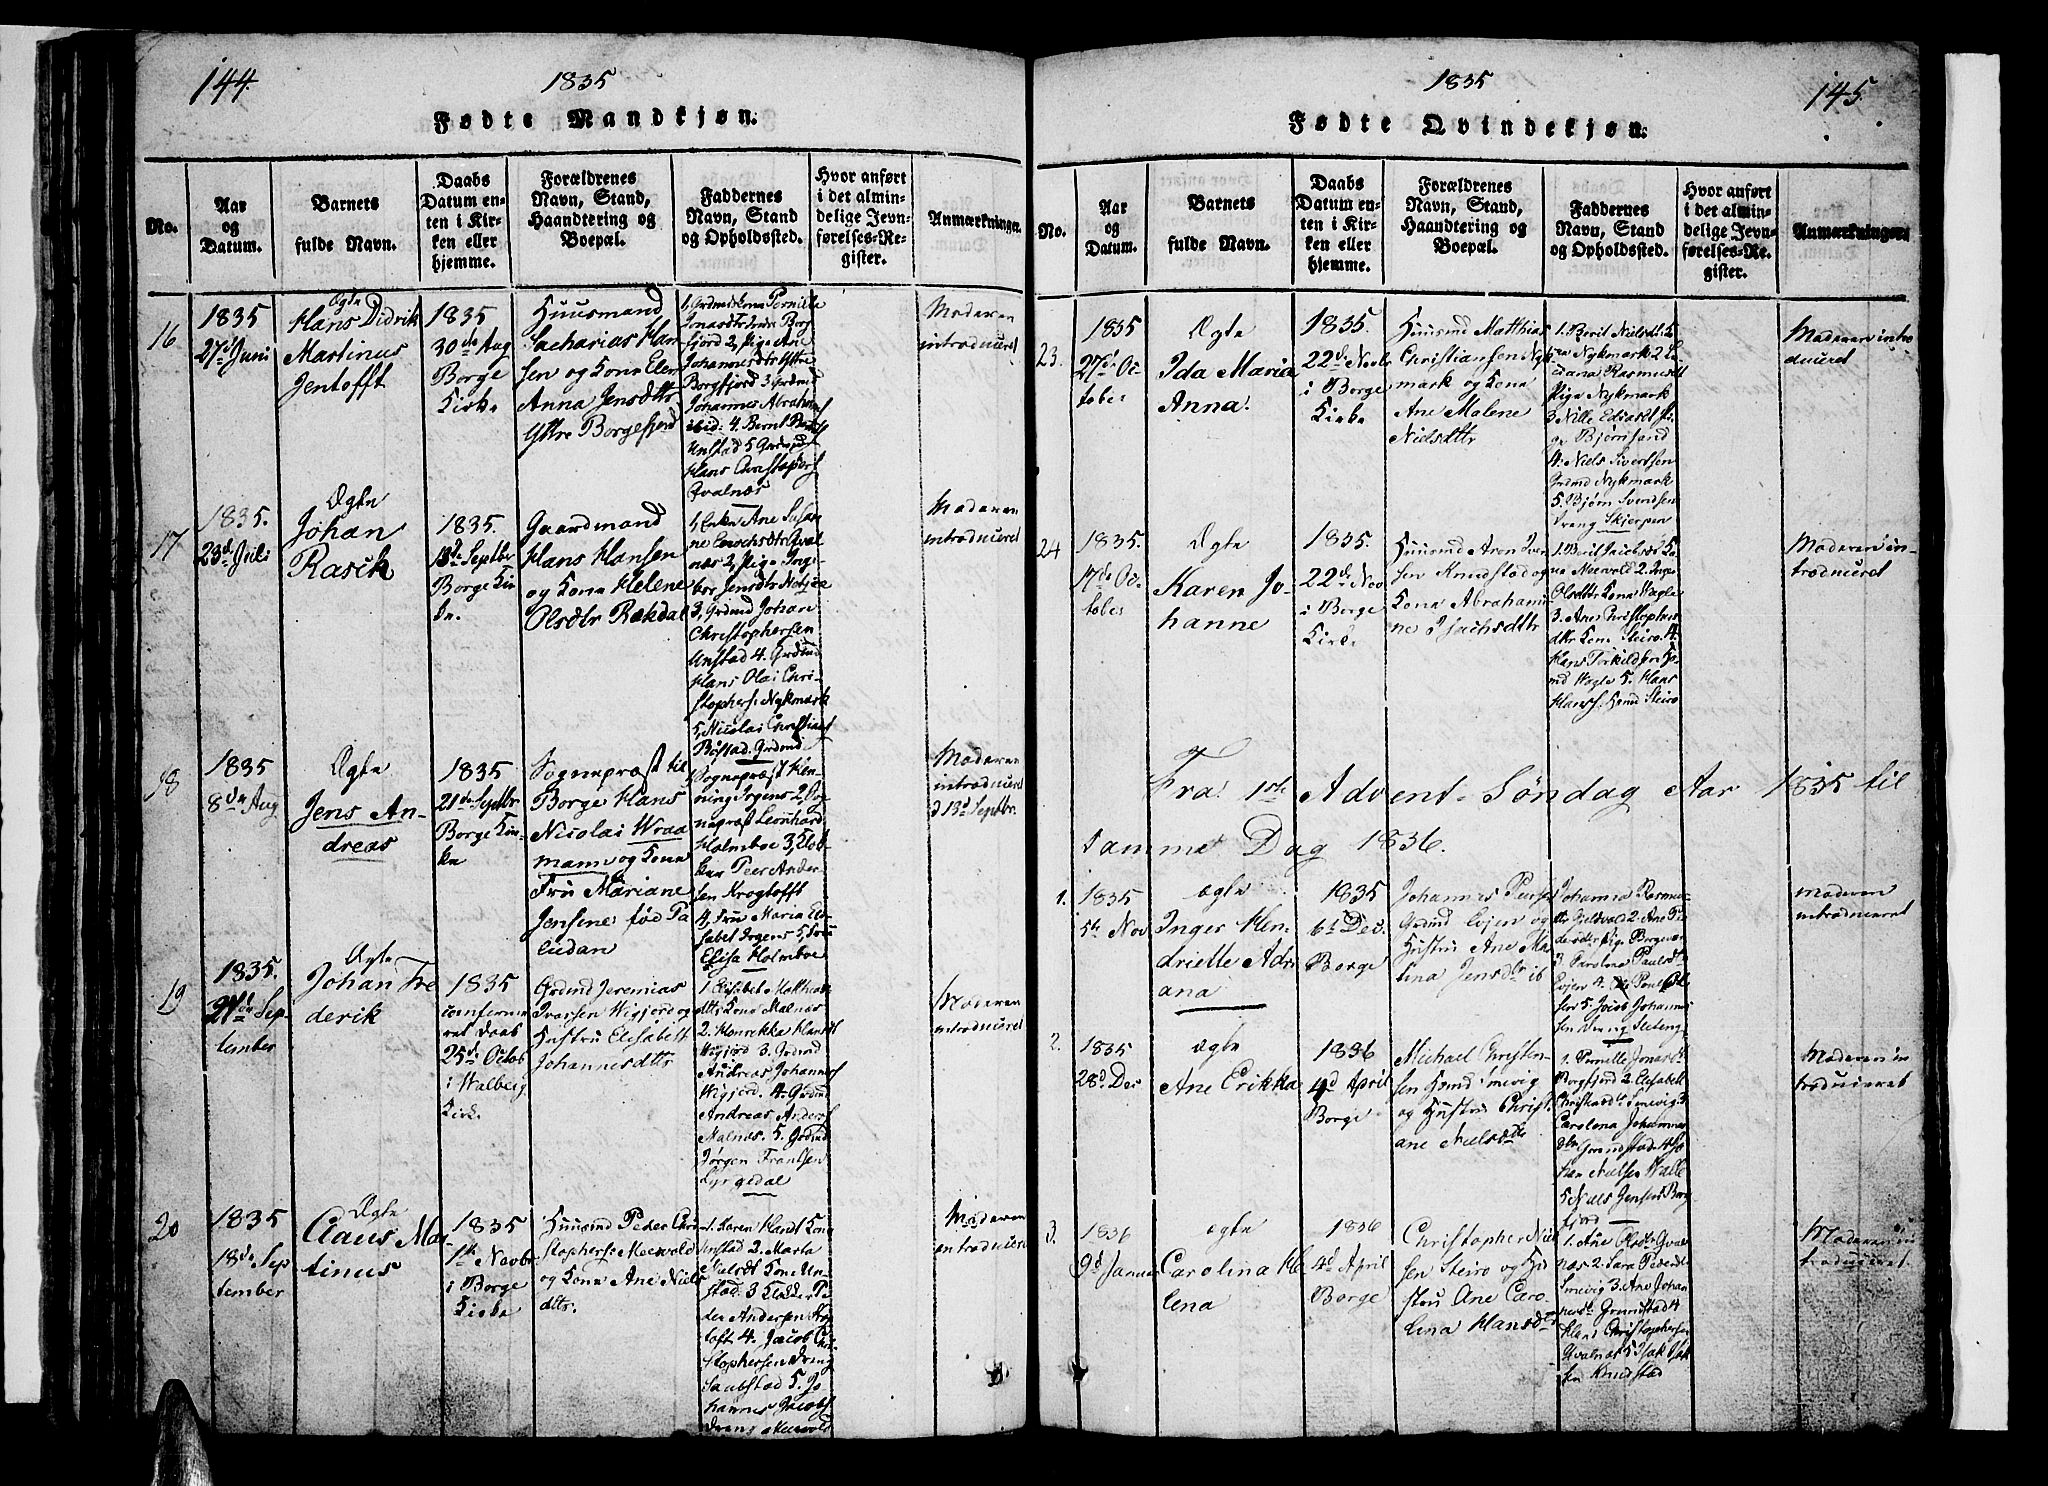 144.
1835
Fødte Mandkjøn.
No.
Aar
og
Datum.
Barnets
fulde Navn.
Daabs
Datum en-
ten i Kir-
ken eller
hjemme.
Forældrenes
Navn, Stand,
Haandtering og
Boepæl.
Faddernes
Navn, Stand
og Opholdssted.
Hvor anført
i det almin-
delige Jevn-
førelses-Re-
gister.
Anmærkninger.
16
1835
27d Juni
Ægte
Hans Didrik
Martinus
Jentofft
1835
30de Aug
Borge
Kirke
Huusmand
Zacharias Han-
sen og Kona Elen
Anna Jensdtr
Yttre Borgefjord
1, Grdmds Kona Pernille
Jonasdtr Indre Borg-
fjord 2, Pige Ane
Johannesdtr Yttre
Borgfjord 3 Grdmd
Johannes Abrahams
ibid: 4. Bernt
Unstad 5 Grdmd
Hans Christophers
Qvalnæs
Moderen
introduceret
17
1835.
23d Juli
Ægte
Johan
Rasch
1835.
13de Septbr
Borge Kir-
ke.
Gaardmand
Hans Hansen
og Kona Helene
Olsdtr Rækdal
1, Enke Ane Susan
ne Enochsdtr Qval
næs 2, Pige Inge-
bor Jensdtr
3, Grdmd Johan
Christophersen
Unstad 4. Grdmd
Hans Olai Chri-
stophers. Nykmark
5, Nicolai Christians
Bøstad. Grdmd
Moderen
introduceret
18
1835
8de Aug
Ægte
Jens An-
dreas
1835
21de Septbr
Borge Kir-
ke
Sognepræst til
Borge Hans
Nicolai Wraa
mann og Kona
Fru Mariane
Jensine, fød Pa
ludan
1, Sognepræst Hen-
ning Irgens 2, Sog-
nepræst Leonhard
Holmboe 3, Klok-
ker Peer Ander-
sen Krogtofft
4, Fru Maria Eli-
sabet Irgens 5, Fru
Elisa Holmboe
Moderen
introduceret
d 13d Septbr.
19
1835.
21de Sep-
tember
Ægte
Johan Fre
derik
1835
confirme
ret Daab
25de Octob
i Walberg
Kirk.
Grdmd Jeremias
Ivarsen Wigjord og
Hustru Elisabeth
Johannesdttr
1 Elisabet Matthias
dttr Kona Malnæs
2. Henrikka Hansdt
Wigjord 3. Grdmd
Andreas Johannes
Wigjord. 4. Grdmd
Andreas Anders
Malnæs. 5. Grdmd
Jørgen Frantsen
Lyngedal
Moderen
introduceret
20
1835
18de Sep
tember
Ægte
Claus Mar-
tinus
1835
1te Novbr
i Borge
Kirke
Huusmd Peder Chri
stophers. Meevold
og Kona Ane Niels
dttr.
1. Karen Handt Kona
Unstad 2. Marta
Nielsdt Kone Un-
stad. 3 Klokker Pe
der Andersen
toft 4. Jacob Chri
stophersen dreng
Saubstad 5. Jo
hannes Jacobs
dreng Meevold
Moderen
introduceret
1835
145.
Fødte Qvindekjøn.
No.
Aar
og
Datum.
Barnets
fulde Navn.
Daabs
Datum en-
ten i Kir-
ken eller
hjemme.
Forældrenes
Navn, Stand,
Haandtering og
Boepæl.
Faddernes
Navn, Stand
og Opholdssted.
Hvor anført
i det almin-
delige Jevn-
førelses-Re-
gister.
Anmærkninger.
23.
1835
27de Oc-
tober
Ægte
Ida Maria
Anna.
1835.
22de Novbr
i Borge
Kirke
Huusmd Matthias
Christiansen Nyk-
mark og Kona
Ane Malene
Nielsdttr
1. Berit Nielsdtr K
ona Nykmark 2
Rasmusdt
Pige Nykmark
3 Nille Edisdt Pi-
ge Bjørnsand
4. Niels Sivertsen
Grdmd Nykmark
5. Bjørn Svendsen
Dreng Skjerpen
Moderen intro
duceret
24
1835.
17de Oc-
tober
Ægte
Karen Jo-
hanne
1835.
22de Nov
i Borge
Kirke
Huusmd Aron Iver
sen Knudstad og
Kona Abrahami-
ne Isachsdttr
1. Beril Jacobsdt Ko
na Meevold 2. Inge
Olsdttr Kona Hagle
3. Ane Christophers
dttr Kona Steiro. 4.
Hans Torkildsen
Hagle 5. Hans
Hans. Husmd Steiro
Moderen in-
troduceret
Fra 1ste Advent-Søndag Aar 1835 til
samme Dag 1836.
1.
1835
5te Nov
ægte
Inger Hen-
drielle Adri
ana
1835
6te Dec.
Borge
Johannes Peers
Grdmd Eojen og
Hustru Ane Ma
lina Jensdtr ib
Johanna Rasmus
dtr 2. Ane Pe
dersdtr Pige Borgevær
3 Carolina Paulsdt
Eojen 4. Ole Poul
sen 5. Jacob Johannes
sen Dreng
Moderen
introduceret
2.
1835
28d Dec
ægte
Ane Erikka
1836
4d April
Borge
Michael Christen-
sen Husmd Smevig
og Hustru Christ-
ane Nielsdtr
1. Pernille Jonasdt
Borgfjord 2. Elisabeth
Christiansdt Smevig 3
Carolina Johannes
dtr Grundstad 4 Jo
han Nielsen Walle
5 Niels Jensen Borg
fjord
Moderen in
troduceret
3.
1836
9d Januar
ægte
Carolina He
lena
1836
4d April
Borge
Christopher Niel
sen Steiro og Hu
stru Ane Caro-
lina Hansdtr
1. Ane Olsdtr Qval
næs 2. Sara Pedersdt
Smevig 3. Ane Johan
nesdt Grunstad 4
Hans Christophersen
Hvalnæs 5 Isak Isak
sen Knudstad
Moderen in
troduceret.